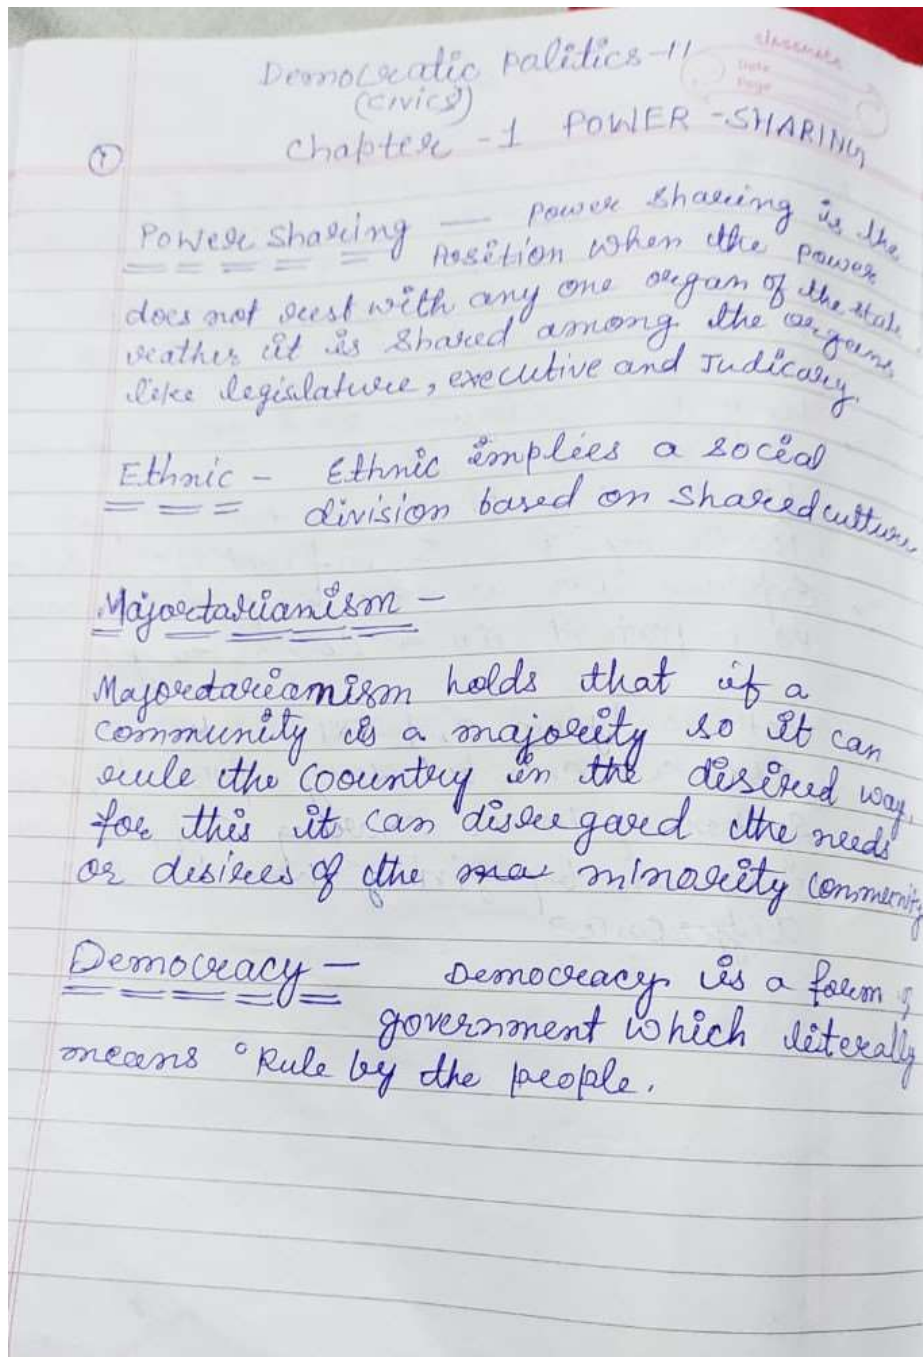 classmate
Date
Page
Democratic Palitics-11
(civics)
Chapter -1 POWER -SHARING
Power Sharing — Power Sharing is the
Position when the power
does not rest with any one organ of the state
reather it is Shared among the organs
like legislature, executive and Judicary.
Ethnic - Ethnic implies a social
division based on Shared culture.
Majortarianism -
Majortarianism holds that if a
community is a majority so it can
rule the coountry in the desired way,
for this it can disregard the needs
or desires of the minority community
Democracy - Democracy is a form
government which literally
means "Rule by the people.